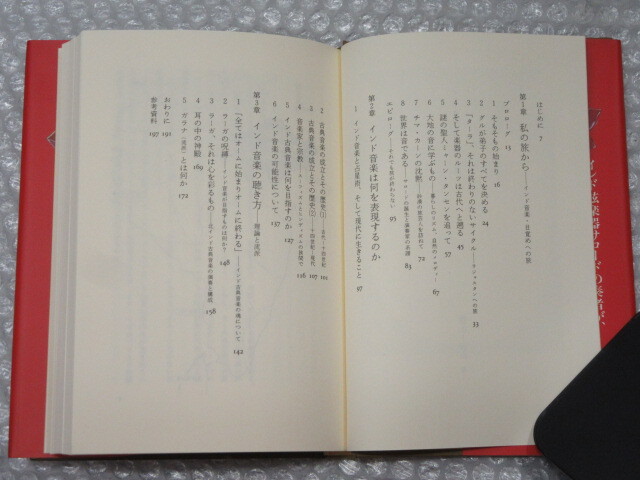 はじめに 7
第1章 私の旅から――インド音楽・目覚めへの旅
プロローグ 13
1 そもそもの始まり 16
2 グルが弟子のすべてを決める 24
3 「ターラ」、それは終わりのないサイクル 33
4 そして楽器のルーツは古代へと遡る 45
5 謎の聖人ミャーン・タンセンを追って 57
6 大地の音に学ぶもの 67
7 サマ・カーンの沈黙 72
8 世界は音である 83
エピローグ 93
第2章 インド音楽は何を表現するのか
1 インド音楽と占星術、そして現代に生きること 97
2 古典音楽の成立とその歴史(1)――古代・十四世紀 101
3 古典音楽の成立とその歴史(2)――十四世紀・現代 107
4 音楽家と宗教 116
5 インド古典音楽は何を目指すのか 127
6 インド音楽の可能性について 137
第3章 インド音楽の聴き方――理論と流派
1 「全てはオームに始まりオームに終わる」――インド古典音楽の魂について 142
2 ラーガの呪縛――インド音楽が目指すものは何か? 148
3 ラーガ、それは心を彩るもの――北インド古典音楽の演奏と構成 158
4 耳の中の神殿 169
5 ガラナ(流派)とは何か 172
おわりに 191
参考資料 197
インド弦楽器サロードの奏者が、